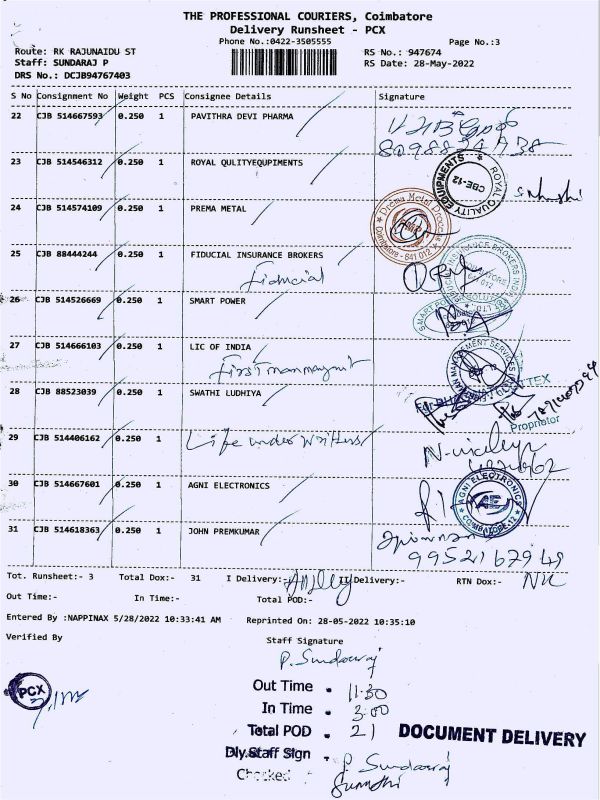 THE PROFESSIONAL COURIERS, Coimbatore
Delivery Runsheet - PCX
Phone No.:0422-3505555
Page No.:3
Route: RK RAJUNAIDU ST
RS No.: 947674
Staff: SUNDARAJ P
RS Date: 28-May-2022
DRS No.: DCJB94767403
S No Consignment No Weight PCS Consignee Details Signature
22 CJB 514667593 0.250 1 PAVITHRA DEVI PHARMA
8098824738
23 CJB 514546312 0.250 1 ROYAL QULITYEQUPIMENTS
ROYAL QUALITY EQUIPMENTS CBE-12
24 CJB 514574109 0.250 1 PREMA METAL
Prema Metal Process Coimbatore - 641 012
25 CJB 88444244 0.250 1 FIDUCIAL INSURANCE BROKERS
Fiducial
26 CJB 514526669 0.250 1 SMART POWER
27 CJB 514666103 0.250 1 LIC OF INDIA
28 CJB 88523039 0.250 1 SWATHI LUDHIYA
Proprietor
29 CJB 514406162 0.250 1 Life under writters
30 CJB 514667601 0.250 1 AGNI ELECTRONICS
AGNI ELECTRONICS COIMBATORE-12 AE
31 CJB 514618363 0.250 1 JOHN PREMKUMAR
Tot. Runsheet:- 3 Total Dox:- 31 I Delivery:- II Delivery:- RTN Dox:-
Out Time:- In Time:- Total POD:-
Entered By :NAPPINAX 5/28/2022 10:33:41 AM Reprinted On: 28-05-2022 10:35:10
Verified By Staff Signature
P. Sundaaraj
PCX
Out Time - 11.30
In Time - 3.00
Total POD - 21
DOCUMENT DELIVERY
Dly.Staff Sign - P. Sundaaraj
Checked